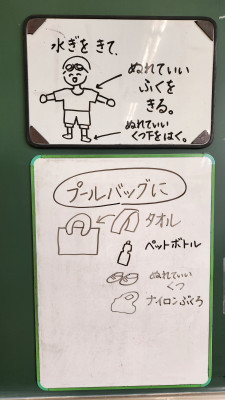 水ぎをきて、
ぬれていい
ふくを
きる。
ぬれていい
くつ下をはく。
プールバッグに
タオル
ペットボトル
ぬれていい
くつ
ナイロンぶくろ